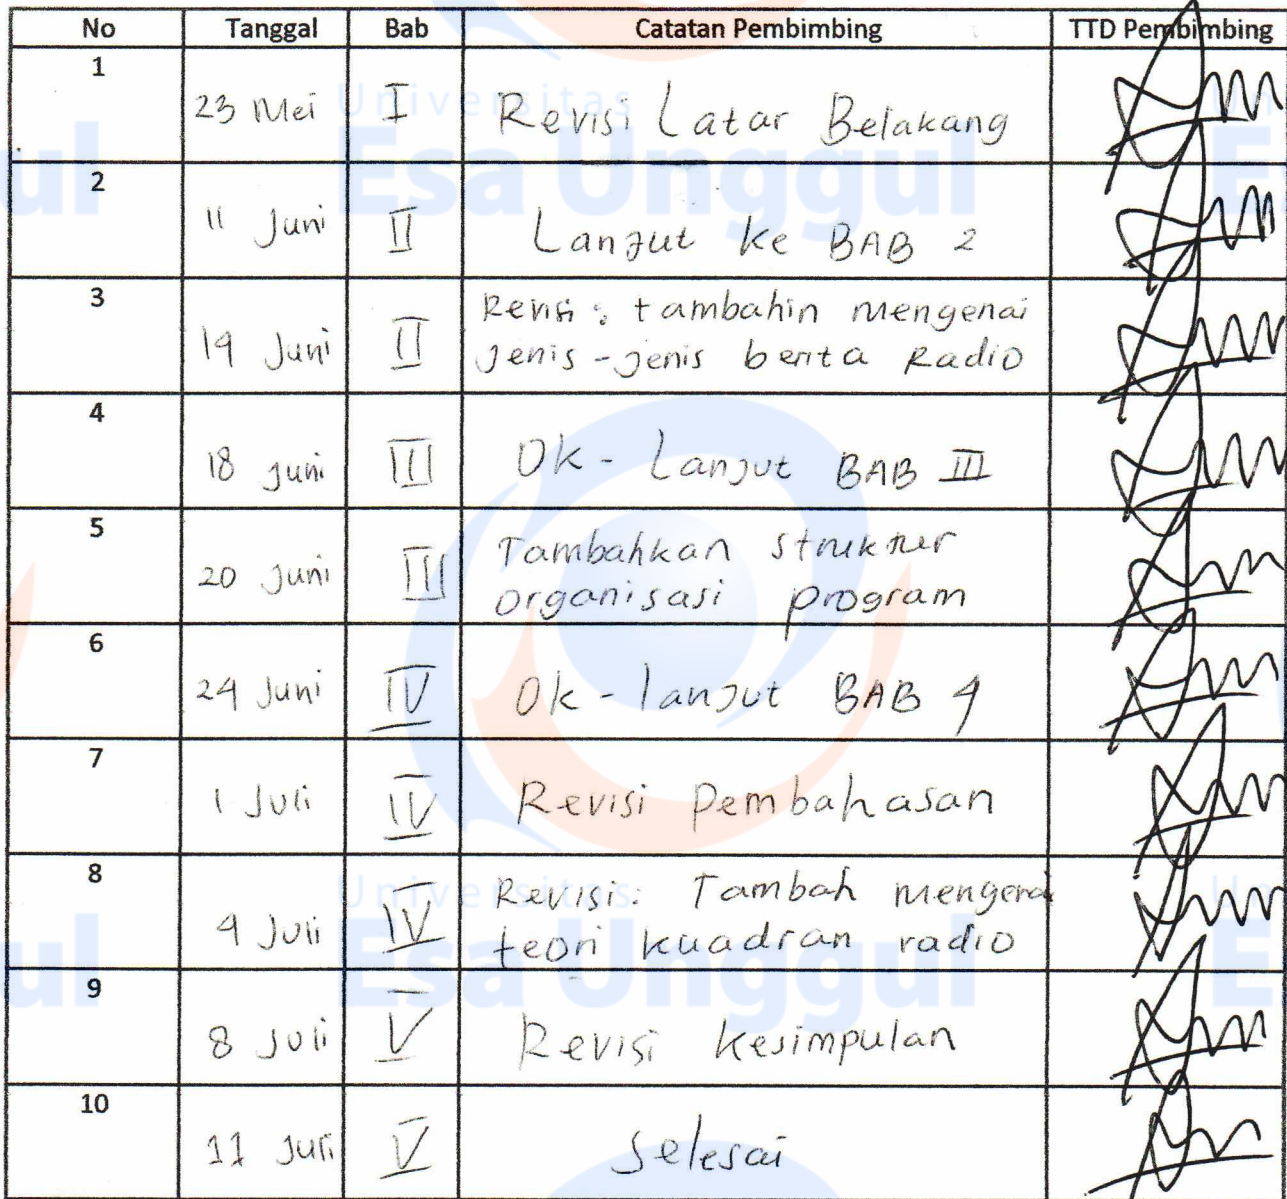 No Tanggal Bab Catatan Pembimbing TTD Pembimbing
1 23 Mei I Revisi Latar Belakang
2 11 Juni II Lanjut ke BAB 2
3 14 Juni II Revisi : tambahin mengenai
Jenis-Jenis berita Radio
4 18 Juni III Ok - Lanjut BAB III
5 20 Juni III Tambahkan struktur
organisasi program
6 24 Juni IV Ok - lanjut BAB 4
7 1 Juli IV Revisi Pembahasan
8 4 Juli IV Revisi: Tambah mengenai
teori kuadran radio
9 8 Juli V Revisi Kesimpulan
10 11 Juli V Selesai
Universitas
Esa Unggul
Universitas
Esa Unggul